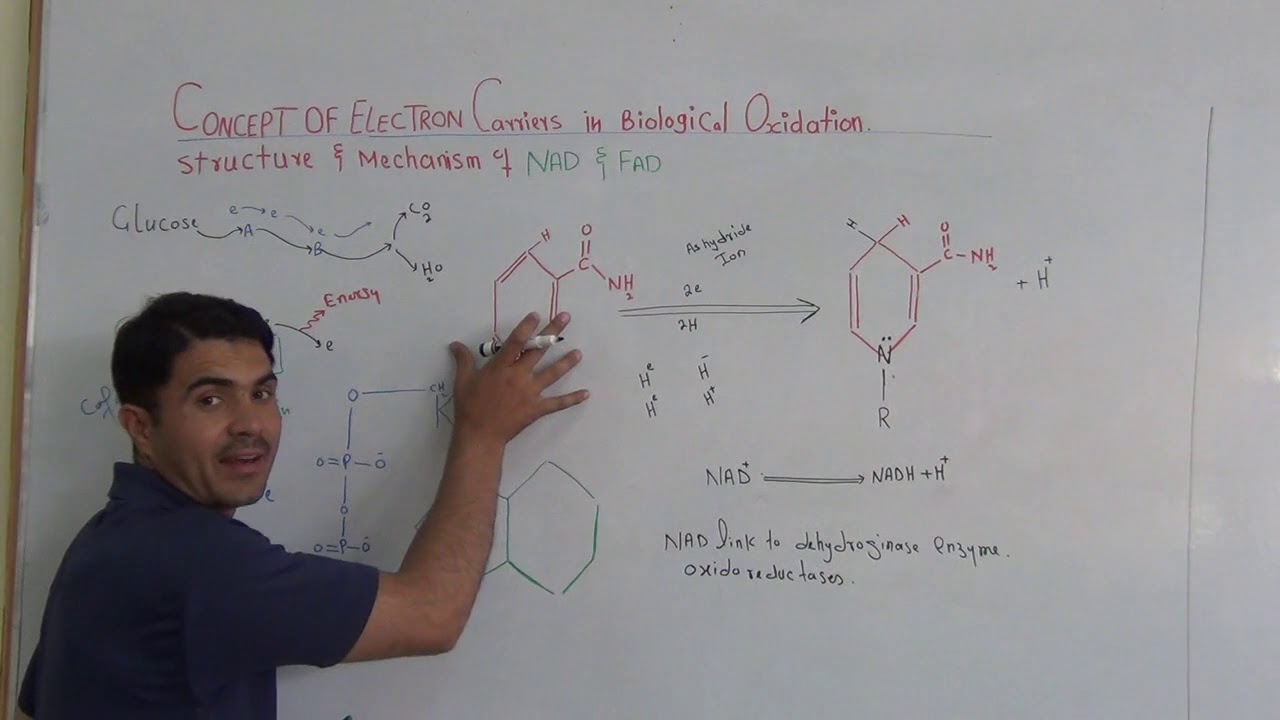 CONCEPT OF ELECTRON Carriers in Biological Oxidation.
structure & Mechanism of NAD & FAD
Glucose
e e e
A
B
CO2
H2O
Energy
e
H
O
C
NH2
As hydride
Ion
2e
2H
He H-
He H+
H H
O
C-NH2
+ H+
N
R
O CH2
O=P-O-
O
O=P-O-
NAD+ NADH + H+
NAD link to dehydroginase enzyme.
oxidoreductases.